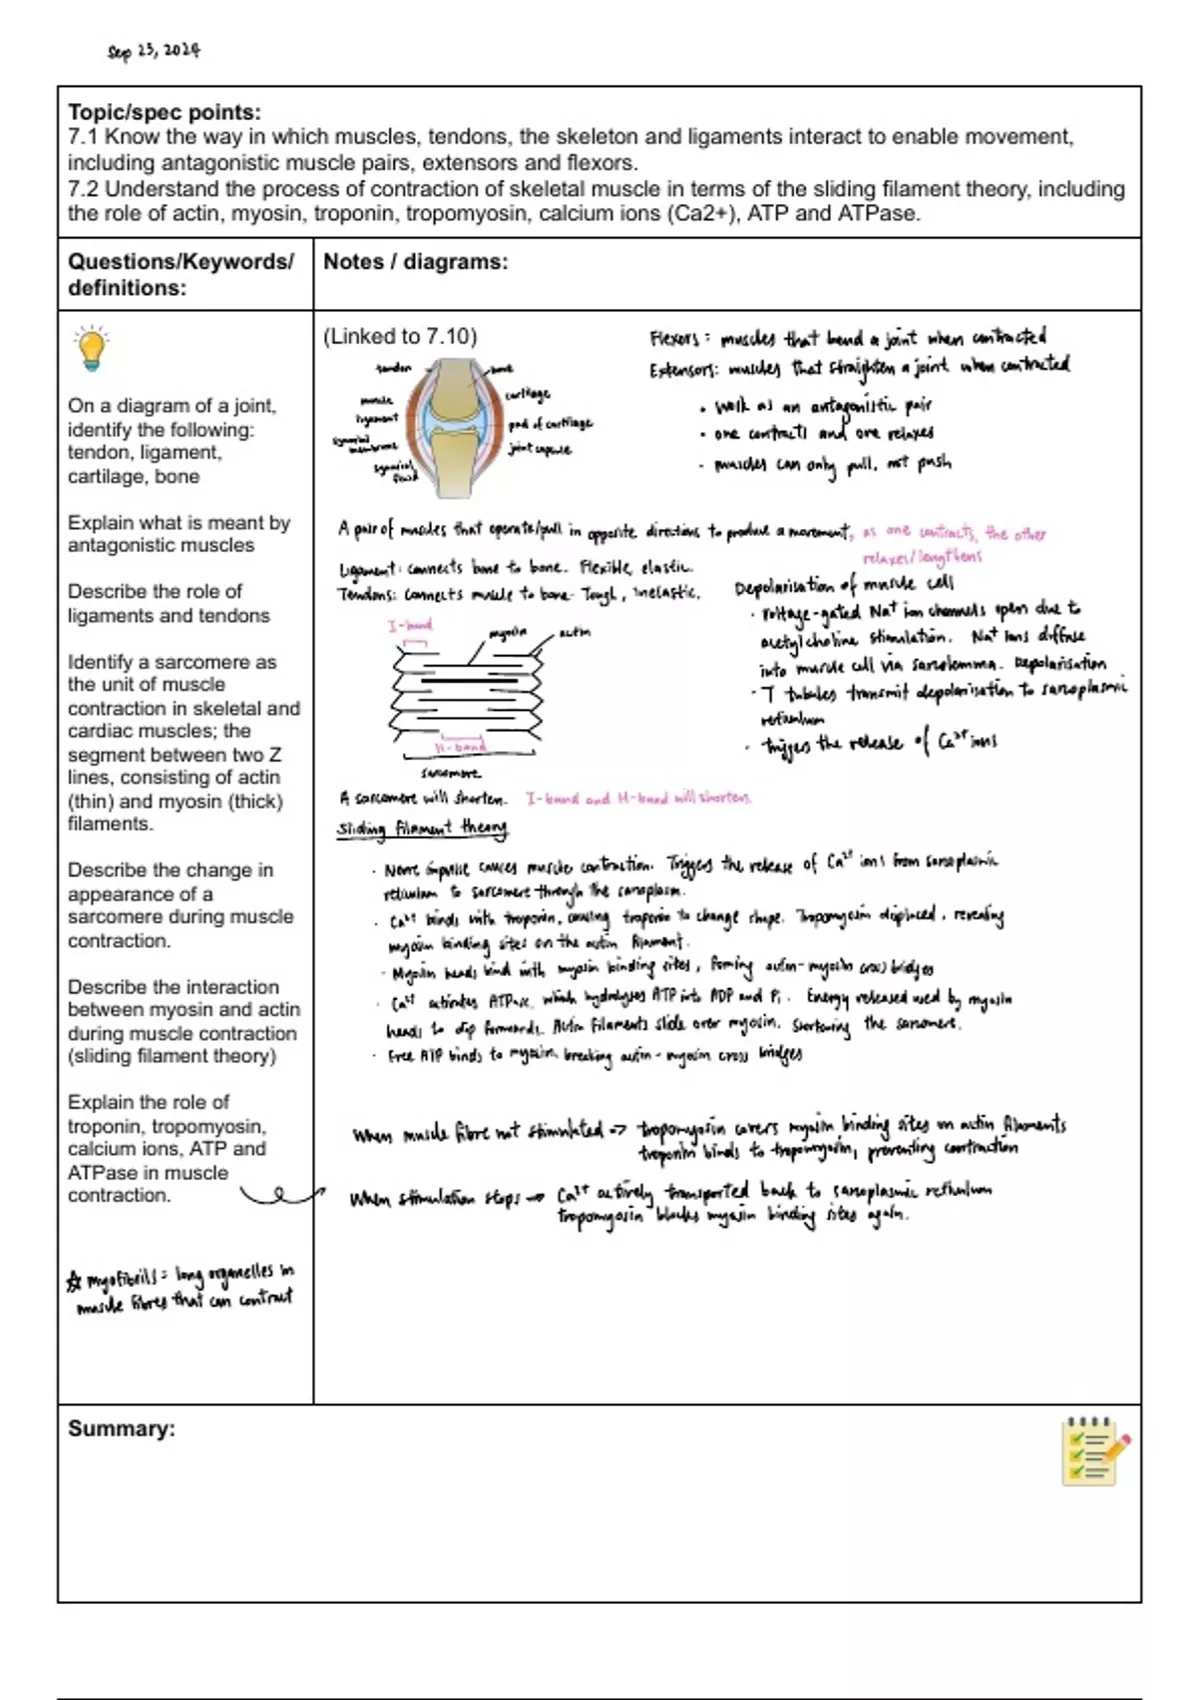 Sep 23, 2024
Topic/spec points:
7.1 Know the way in which muscles, tendons, the skeleton and ligaments interact to enable movement,
including antagonistic muscle pairs, extensors and flexors.
7.2 Understand the process of contraction of skeletal muscle in terms of the sliding filament theory, including
the role of actin, myosin, troponin, tropomyosin, calcium ions (Ca2+), ATP and ATPase.
Questions/Keywords/
definitions:
Notes / diagrams:
On a diagram of a joint,
identify the following:
tendon, ligament,
cartilage, bone
Explain what is meant by
antagonistic muscles
Describe the role of
ligaments and tendons
Identify a sarcomere as
the unit of muscle
contraction in skeletal and
cardiac muscles; the
segment between two Z
lines, consisting of actin
(thin) and myosin (thick)
filaments.
Describe the change in
appearance of a
sarcomere during muscle
contraction.
Describe the interaction
between myosin and actin
during muscle contraction
(sliding filament theory)
Explain the role of
troponin, tropomyosin,
calcium ions, ATP and
ATPase in muscle
contraction.
☆ myofibrils = long organelles in
muscle fibres that can contract
(Linked to 7.10)
tendon
muscle
ligament
synovial
membrane
synovial
fluid
bone
cartilage
pad of cartilage
joint capsule
Flexors: muscles that bend a joint when contracted
Extensors: muscles that straighten a joint when contracted
• work as an antagonistic pair
• one contracts and one relaxes
• muscles can only pull, not push
A pair of muscles that operate/pull in opposite directions to produce a movement, as one contracts, the other
relaxes/lengthens
Ligament: connects bone to bone. Flexible, elastic.
Tendons: connects muscle to bone. Tough, inelastic.
I-band
myosin
actin
H-band
sarcomere
Depolarisation of muscle cell
• Voltage-gated Na⁺ ion channels open due to
acetylcholine stimulation. Na⁺ ions diffuse
into muscle cell via sarcolemma. Depolarisation
• T tubules transmit depolarisation to sarcoplasmic
reticulum
• triggers the release of Ca²⁺ ions
A sarcomere will shorten. I-band and H-band will shorten.
Sliding filament theory
• Nerve impulse causes muscle contraction. Triggers the release of Ca²⁺ ions from sarcoplasmic
reticulum to sarcomere through the sarcoplasm.
• Ca²⁺ binds with troponin, causing troponin to change shape. Tropomyosin displaced, revealing
myosin binding sites on the actin filament.
• Myosin heads bind with myosin binding sites, forming actin-myosin cross bridges
• Ca²⁺ activates ATPase, which hydrolyses ATP into ADP and Pi. Energy released used by myosin
heads to dip forwards. Actin filaments slide over myosin. Shortening the sarcomere.
• Free ATP binds to myosin, breaking actin-myosin cross bridges
When muscle fibre not stimulated → tropomyosin covers myosin binding sites on actin filaments
troponin binds to tropomyosin, preventing contraction
When stimulation stops → Ca²⁺ actively transported back to sarcoplasmic reticulum
tropomyosin blocks myosin binding sites again.
Summary: